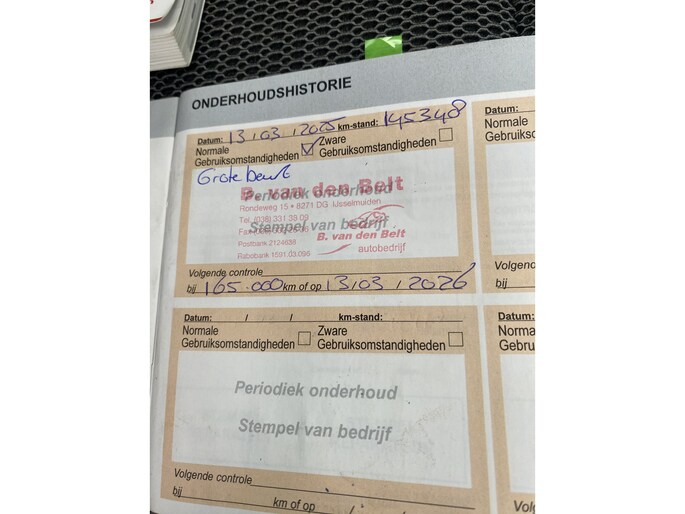 ONDERHOUDSHISTORIE
Datum: 13 / 03 / 2025 km-stand: 145348
Normale Gebruiksomstandigheden ☑ Zware Gebruiksomstandigheden ☐
Grote beurt
B. van den Belt
Periodiek onderhoud
Rondeweg 15 • 8271 DG IJsselmuiden
Tel. (038) 331 38 09
Stempel van bedrijf
B. van den Belt
Postbank 2124638
autobedrijf
Rabobank 1591.03.095
Volgende controle
bij 165.000 km of op 13 / 03 / 2026
Datum: / / km-stand:
Normale Gebruiksomstandigheden ☐ Zware Gebruiksomstandigheden ☐
Periodiek onderhoud
Stempel van bedrijf
Volgende controle
bij km of op / /
Datum:
Normale
Gebruiks
Volgen
bij
Datum:
Normale
Gebruik
Volgen
bij